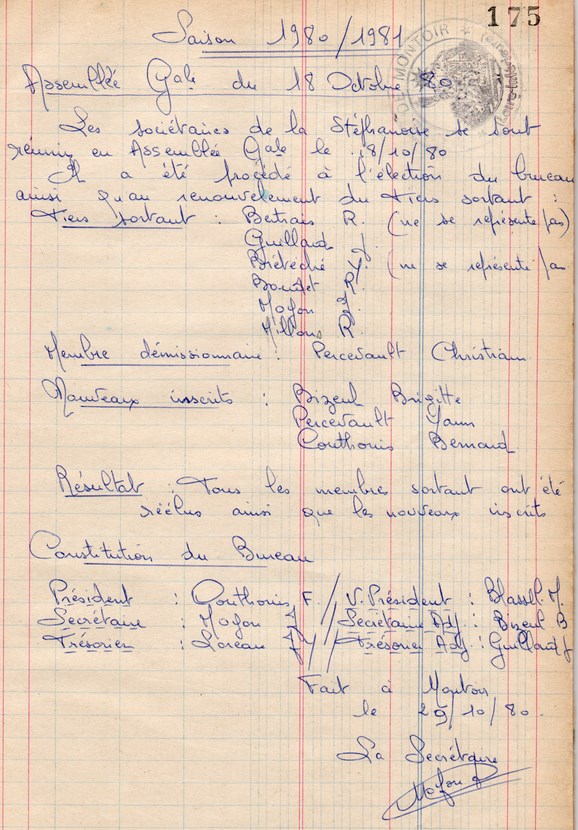 175
Saison 1980/1981
DE MONTOIR
Assemblée Gale du 18 Octobre 80
Les sociétaires de la Stéphanoise se sont
réunis en Assemblée Gale le 18/10/80
Il a été procédé à l'élection du bureau
ainsi qu'au renouvelement du tiers sortant :
Tiers sortant : Betrais R. (ne se représente pas)
Guilland J.
Biéteché Y. (ne se représente pas
Boudet R.
Moyon J.
Millous R.
Membre démissionnaire : Percevault Christian
Nouveaux inscrits : Bizeul Brigitte
Percevault Yann
Couthouis Bernard
Résultat : Tous les membres sortant ont été
réélus ainsi que les nouveaux inscrits
Constitution du Bureau
Président : Couthouis F. // V. Président : Blassel. M.
Secrétaire : Moyon J // Secrétaire Adj. : Bizeul B
Trésorier : Loreau JY // Trésorier Adj : Guilland J
Fait à Montoir
le 29/10/80.
La Secrétaire